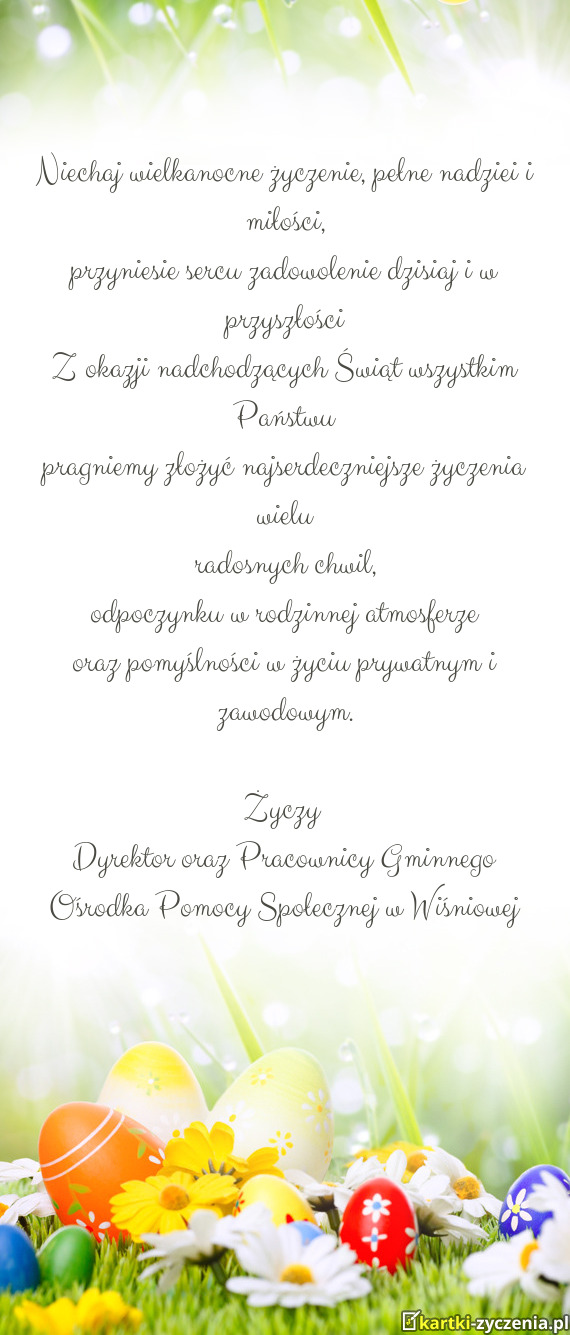 Niechaj wielkanocne życzenie, pełne nadziei i
miłości,
przyniesie sercu zadowolenie dzisiaj i w
przyszłości
Z okazji nadchodzących Świąt wszystkim
Państwu
pragniemy złożyć najserdeczniejsze życzenia
wielu
radosnych chwil,
odpoczynku w rodzinnej atmosferze
oraz pomyślności w życiu prywatnym i
zawodowym.
Życzy
Dyrektor oraz Pracownicy Gminnego
Ośrodka Pomocy Społecznej w Wiśniowej
kartki-zyczenia.pl